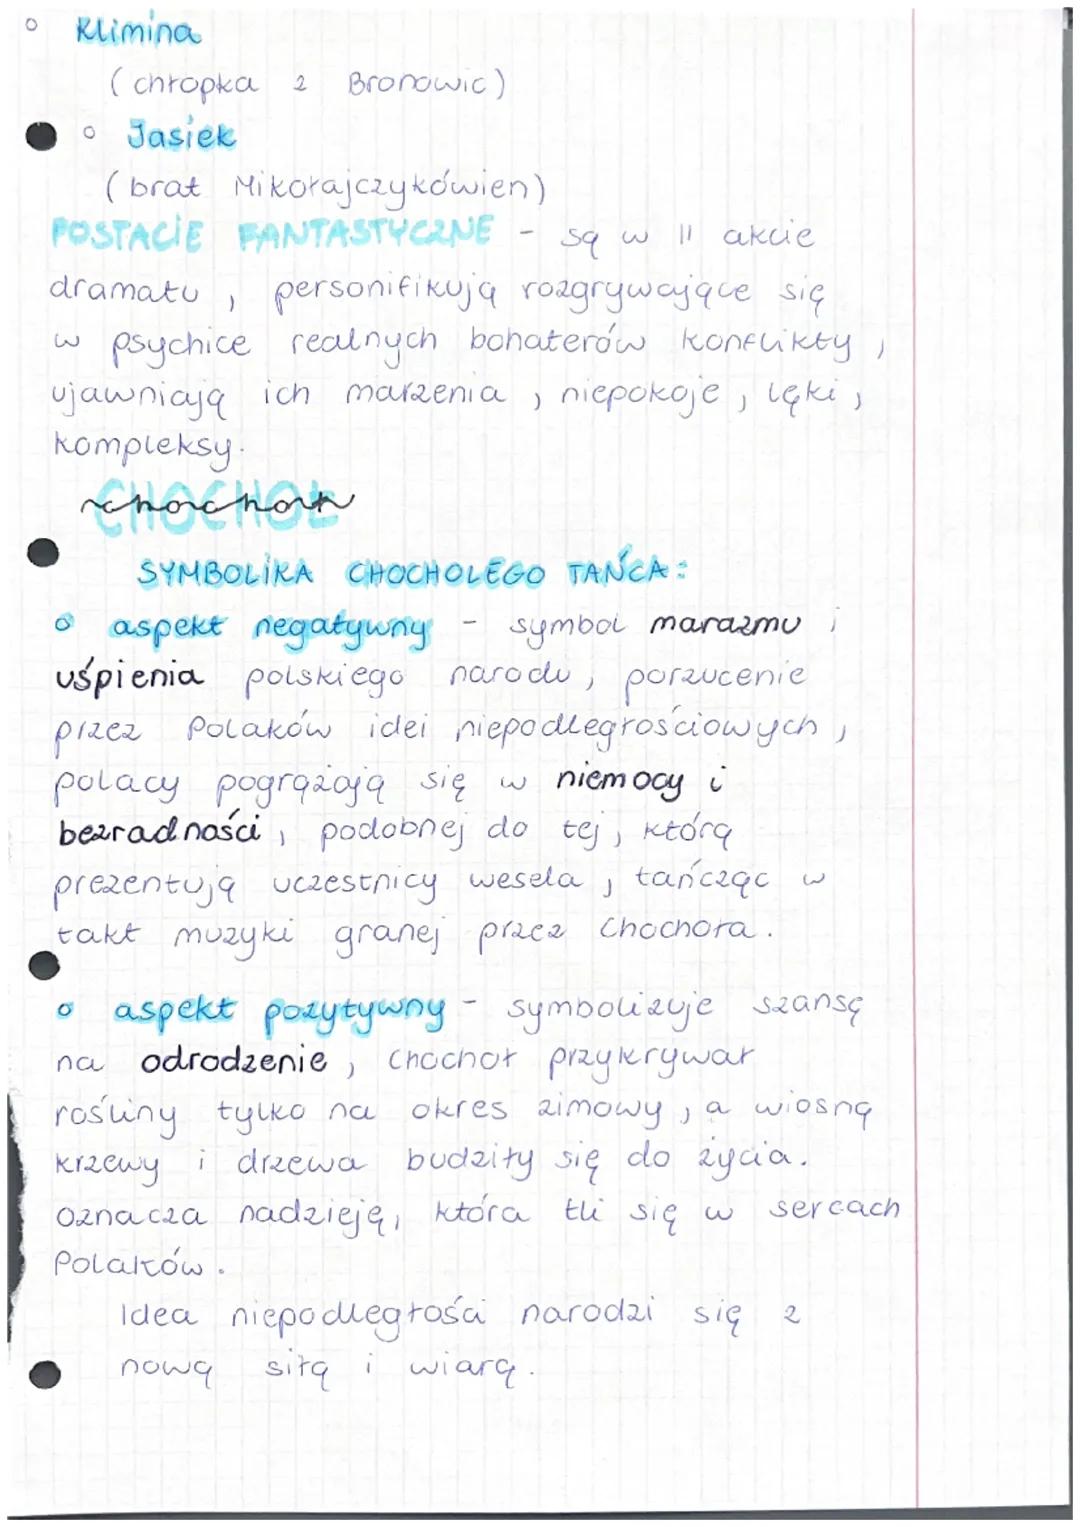 Klimina
(chłopka z Bronowic)
Jasiek
(brat Mikołajczykówien)
POSTACIE FANTASTYCZNE - są w II akcie
dramatu, personifikują rozgrywające się
w psychice realnych bohaterów konflikty,
ujawniają ich marzenia, niepokoje, lęki,
kompleksy.
CHOCHOŁ
chochoł
SYMBOLIKA CHOCHOLEGO TAŃCA:
aspekt negatywny - symbol marazmu i
uśpienia polskiego narodu, porzucenie
przez Polaków idei niepodległościowych,
polacy pogrążają się w niemocy i
bezradności, podobnej do tej, którą
prezentują uczestnicy wesela, tańcząc w
takt muzyki granej przez Chochoła.
aspekt pozytywny - symbolizuje szansę
na odrodzenie, chochoł przykrywał
rośliny tylko na okres zimowy, a wiosną
krzewy i drzewa budziły się do życia.
Oznacza nadzieję, która tli się w sercach
Polaków.
Idea niepodległości narodzi się z
nową siłą i wiarą.